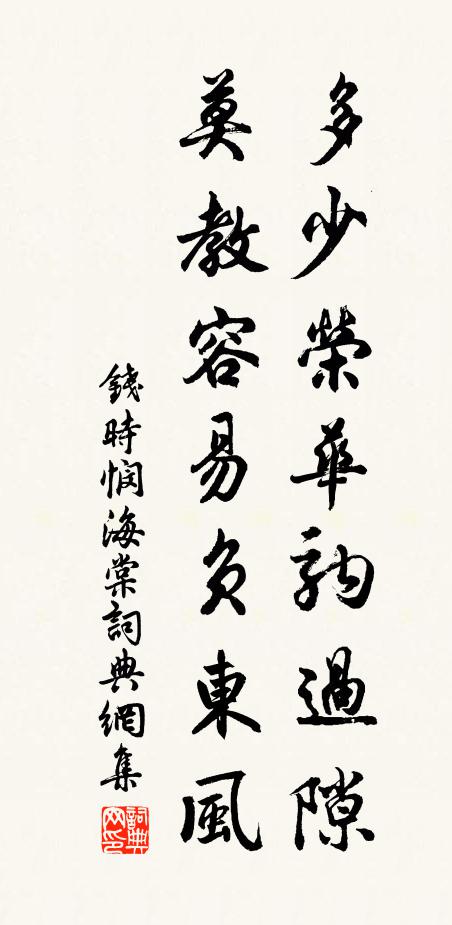 多少榮華駒過隙
莫教容易負東風
錢時憫海棠詞典網集
詞典
网印